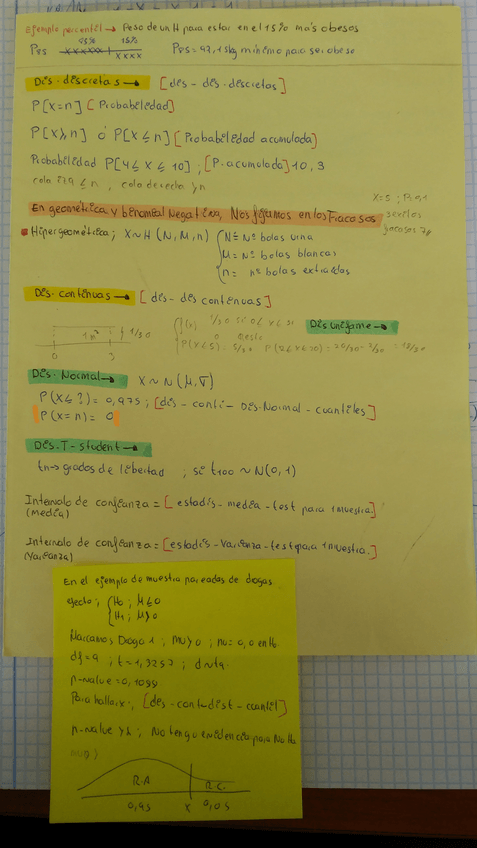 Ejemplo percentil → Peso de un H para estar en el 15% más obesos
85% 15%
P85 xxxxxx | xxxx P85 = 92,15kg mínimo para ser obeso
Dis. discretas → [dis - dis. discretas]
P[x=n] [Probabilidad]
P[x>n] ó P[x≤n] [Probabilidad acumulada]
Probabilidad P[4≤x≤10]; [P. acumulada] 10, 3
cola izq ≤n, cola derecha >n
En geométrica y binomial Negativa, Nos fijamos en los Fracasos
x=5;
exitos
Hipergeométrica; X~H (N, M, n)
N = Nº bolas urna
M = Nº bolas blancas
n = nº bolas extraídas
Dis. continuas → [dis - dis continuas]
Dis uniforme →
1/30
0
Dis. Normal → X ~ N(μ, σ)
P(x≤?) = 0,975; [dis - conti - Dis. Normal - cuantiles]
P(x=n) = 0
Dis. T-student →
tn → grados de libertad ; si t100 ~ N(0,1)
Intervalo de confianza = [estadis - media - test para 1 muestra]
(media)
Intervalo de confianza = [estadis - Varianza - test para 1 muestra.]
(Varianza)
En el ejemplo de muestra pareadas de drogas
efecto; H0; μ≤0
H1; μ>0
Marcamos Droga 1; mu>0; mu=0,0 en H0
df=9; t=1,3257;
p-value=0,1099
Para hallar x; [dis - cont - dist - cuantil]
p-value >α; No tengo evidencia para No H0
R.A R.C
0,95 x 0,05